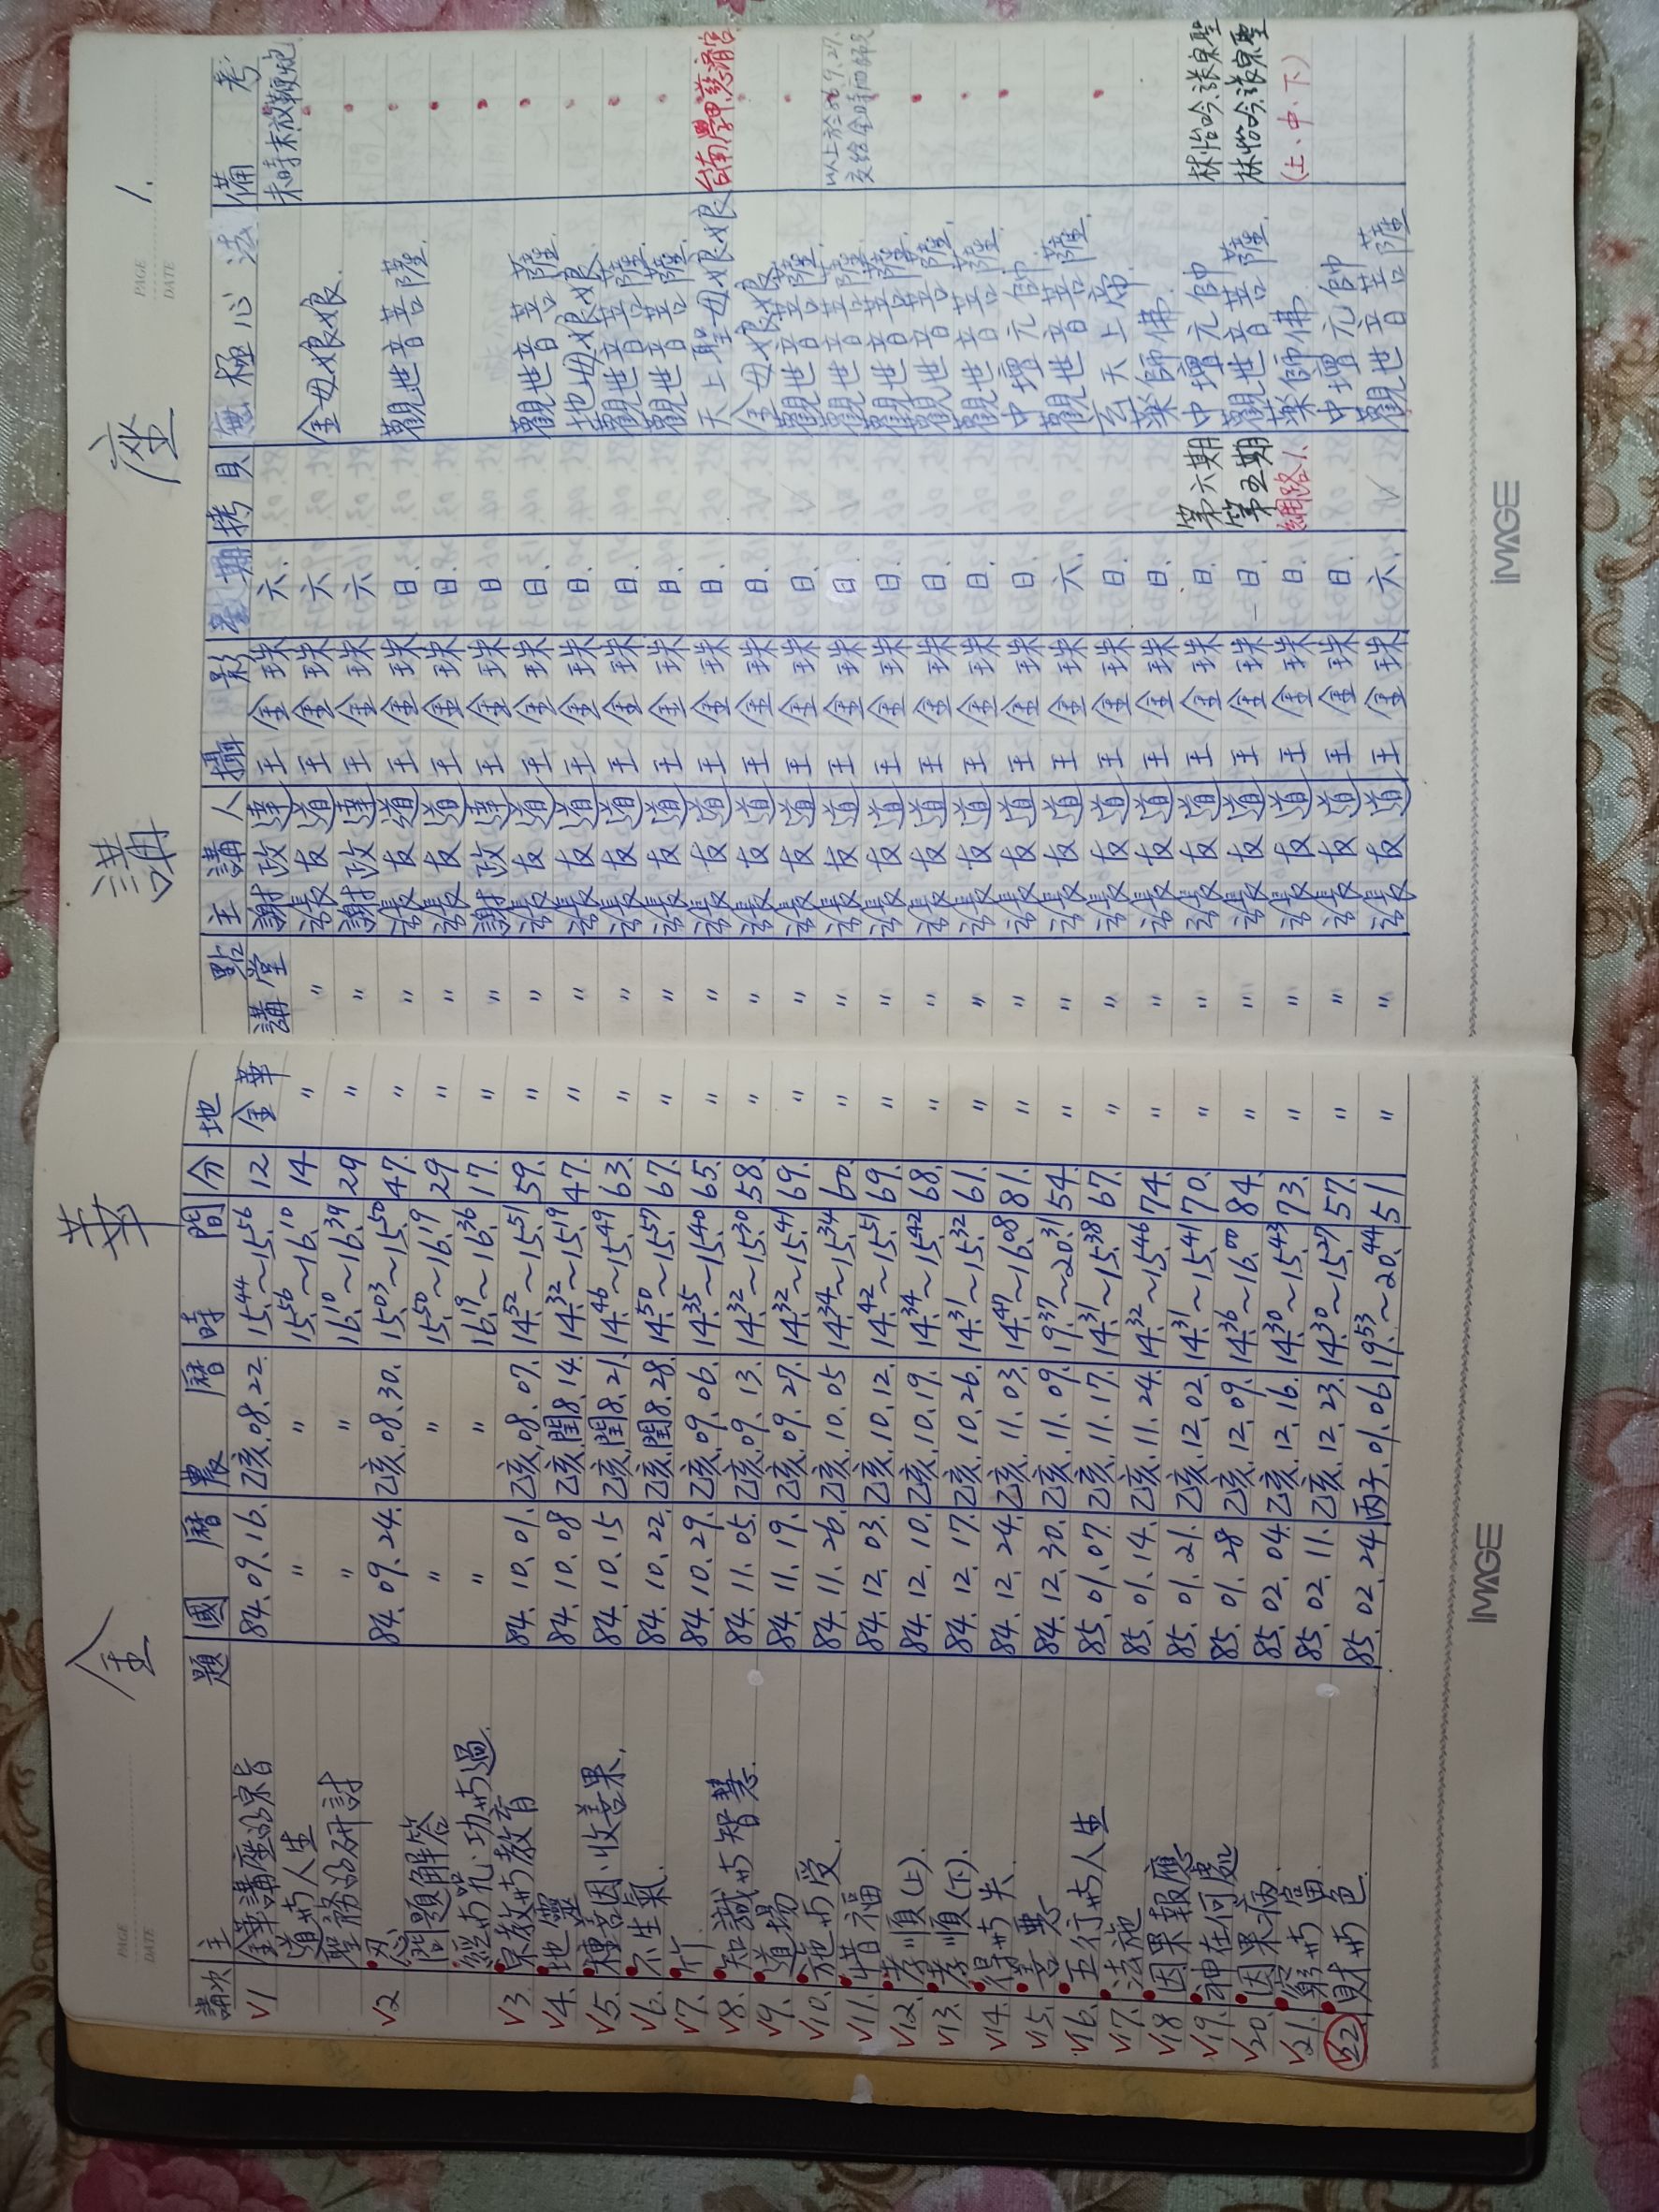 金華講座
PAGE
DATE
PAGE 1.
DATE
講次 主題 國曆 農曆 時間 分 地點 主講人 攝影 星期 拷貝 無極心法 備考
1 金華講座的宗旨 84.09.16. 乙亥.08.22. 15.44~15.56 12 金華講堂 謝政達 王金珠 六. 未時末放鞭炮
道与人生 〃 〃 15.56~16.10 14 〃 〃 張友道 王金珠 六 金母娘娘.
聖務的研討 〃 〃 16.10~16.39 29 〃 〃 謝政達 王金珠 六
2 忍. 84.09.24. 乙亥.08.30. 15.03~15.50 47. 〃 〃 張友道 王金珠 日. 觀世音菩薩.
問題解答 〃 〃 15.50~16.19 29 〃 〃 張友道 王金珠 日.
經与咒.功与過. 〃 〃 16.19~16.36 17. 〃 〃 謝政達 王金珠 日
3. 宗教与教育 84.10.01. 乙亥.08.07. 14.52~15.51 59. 〃 〃 張友道 王金珠 日. 觀世音菩薩.
4. 地靈 84.10.08 乙亥.閏8.14. 14.32~15.19 47. 〃 〃 張友道 王金珠 日. 地母娘娘
5. 種善因.收善果. 84.10.15 乙亥.閏8.21. 14.46~15.49 63. 〃 〃 張友道 王金珠 日. 觀世音菩薩.
6. 不生氣. 84.10.22. 乙亥.閏8.28. 14.50~15.57 67. 〃 〃 張友道 王金珠 日. 觀世音菩薩.
7. 竹 84.10.29. 乙亥.09.06. 14.35~15.40 65. 〃 〃 張友道 王金珠 日. 天上聖母娘娘 台南學甲慈濟宮
8. 知識与智慧. 84.11.05. 乙亥.09.13. 14.32~15.30 58. 〃 〃 張友道 王金珠 日. 金母娘娘
9. 道場 84.11.19. 乙亥.09.27. 14.32~15.41 69. 〃 〃 張友道 王金珠 日. 觀世音菩薩.
10. 施与受. 84.11.26. 乙亥.10.05 14.34~15.34 60. 〃 〃 張友道 王金珠 日. 觀世音菩薩. 以上於86.9.27.交給金時師父
11. 惜福 84.12.03. 乙亥.10.12. 14.42~15.51 69. 〃 〃 張友道 王金珠 日. 觀世音菩薩.
12. 孝順(上). 84.12.10. 乙亥.10.19. 14.34~15.42 68. 〃 〃 張友道 王金珠 日. 觀世音菩薩.
13. 孝順(下). 84.12.17. 乙亥.10.26. 14.31~15.32 61. 〃 〃 張友道 王金珠 日. 觀世音菩薩.
14. 得与失. 84.12.24. 乙亥.11.03. 14.47~16.08 81. 〃 〃 張友道 王金珠 日. 中壇元帥.
15. 喜悪 84.12.30. 乙亥.11.09. 19.37~20.31 54. 〃 〃 張友道 王金珠 六. 觀世音菩薩.
16. 五行与人生 85.01.07. 乙亥.11.17. 14.31~15.38 67. 〃 〃 張友道 王金珠 日. 玄天上帝.
17. 法施 85.01.14. 乙亥.11.24. 14.32~15.46 74. 〃 〃 張友道 王金珠 日. 藥師佛.
18 因果報應 85.01.21. 乙亥.12.02. 14.31~15.41 70. 〃 〃 張友道 王金珠 日. 第六期 中壇元帥 林怡吟.張泉聖
19. 神在何處 85.01.28 乙亥.12.09. 14.36~16.00 84. 〃 〃 張友道 王金珠 日. 第五期 觀世音菩薩. 林怡吟.張泉聖
20. 因果病. 85.02.04. 乙亥.12.16. 14.30~15.43 73. 〃 〃 張友道 王金珠 日. 網路1. 藥師佛 (上.中.下)
21. 窮与富. 85.02.11. 乙亥.12.23. 14.30~15.27 57. 〃 〃 張友道 王金珠 日. 中壇元帥
22. 財与色. 85.02.24 丙子.01.06 19.53~20.44 51 〃 〃 張友道 王金珠 六. 觀世音菩薩
IMAGE
IMAGE